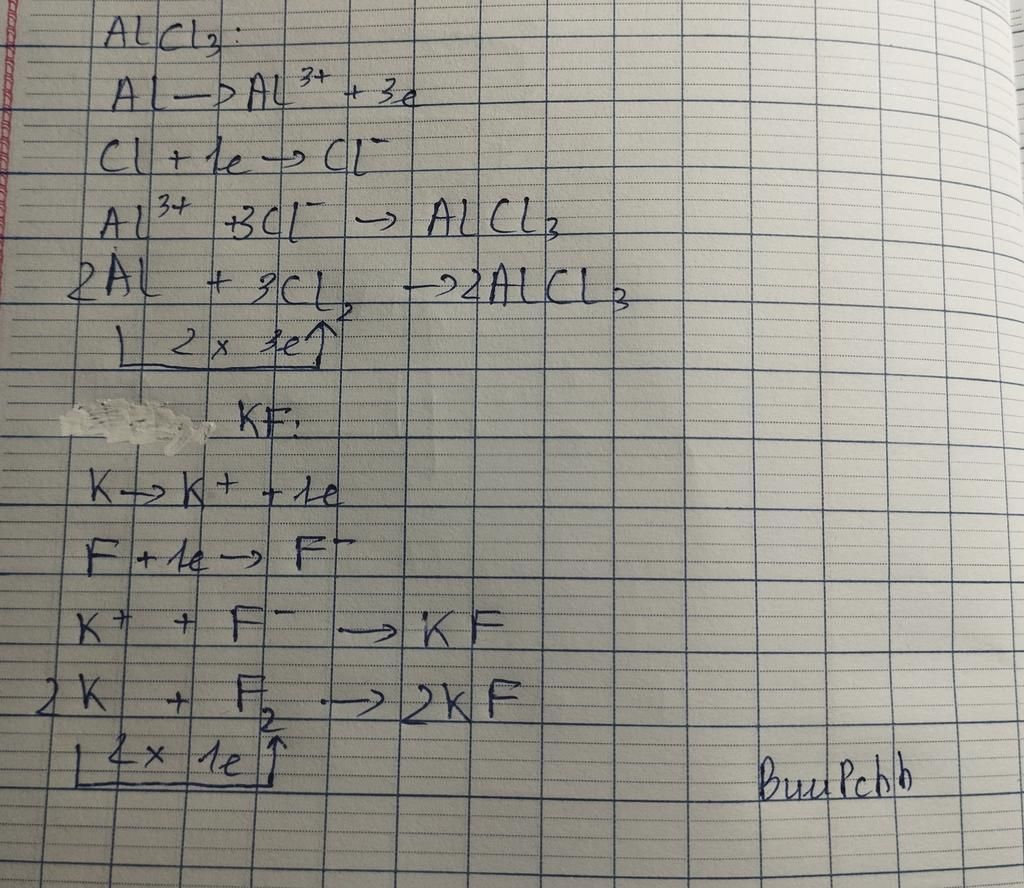 AlCl₃:
Al → Al³⁺ + 3e
Cl + 1e → Cl⁻
Al³⁺ + 3Cl⁻ → AlCl₃
2Al + 3Cl₂ → 2AlCl₃
2 x 3e
KF:
K → K⁺ + 1e
F + 1e → F⁻
K⁺ + F⁻ → KF
2K + F₂ → 2KF
2 x 1e
BuuPchh